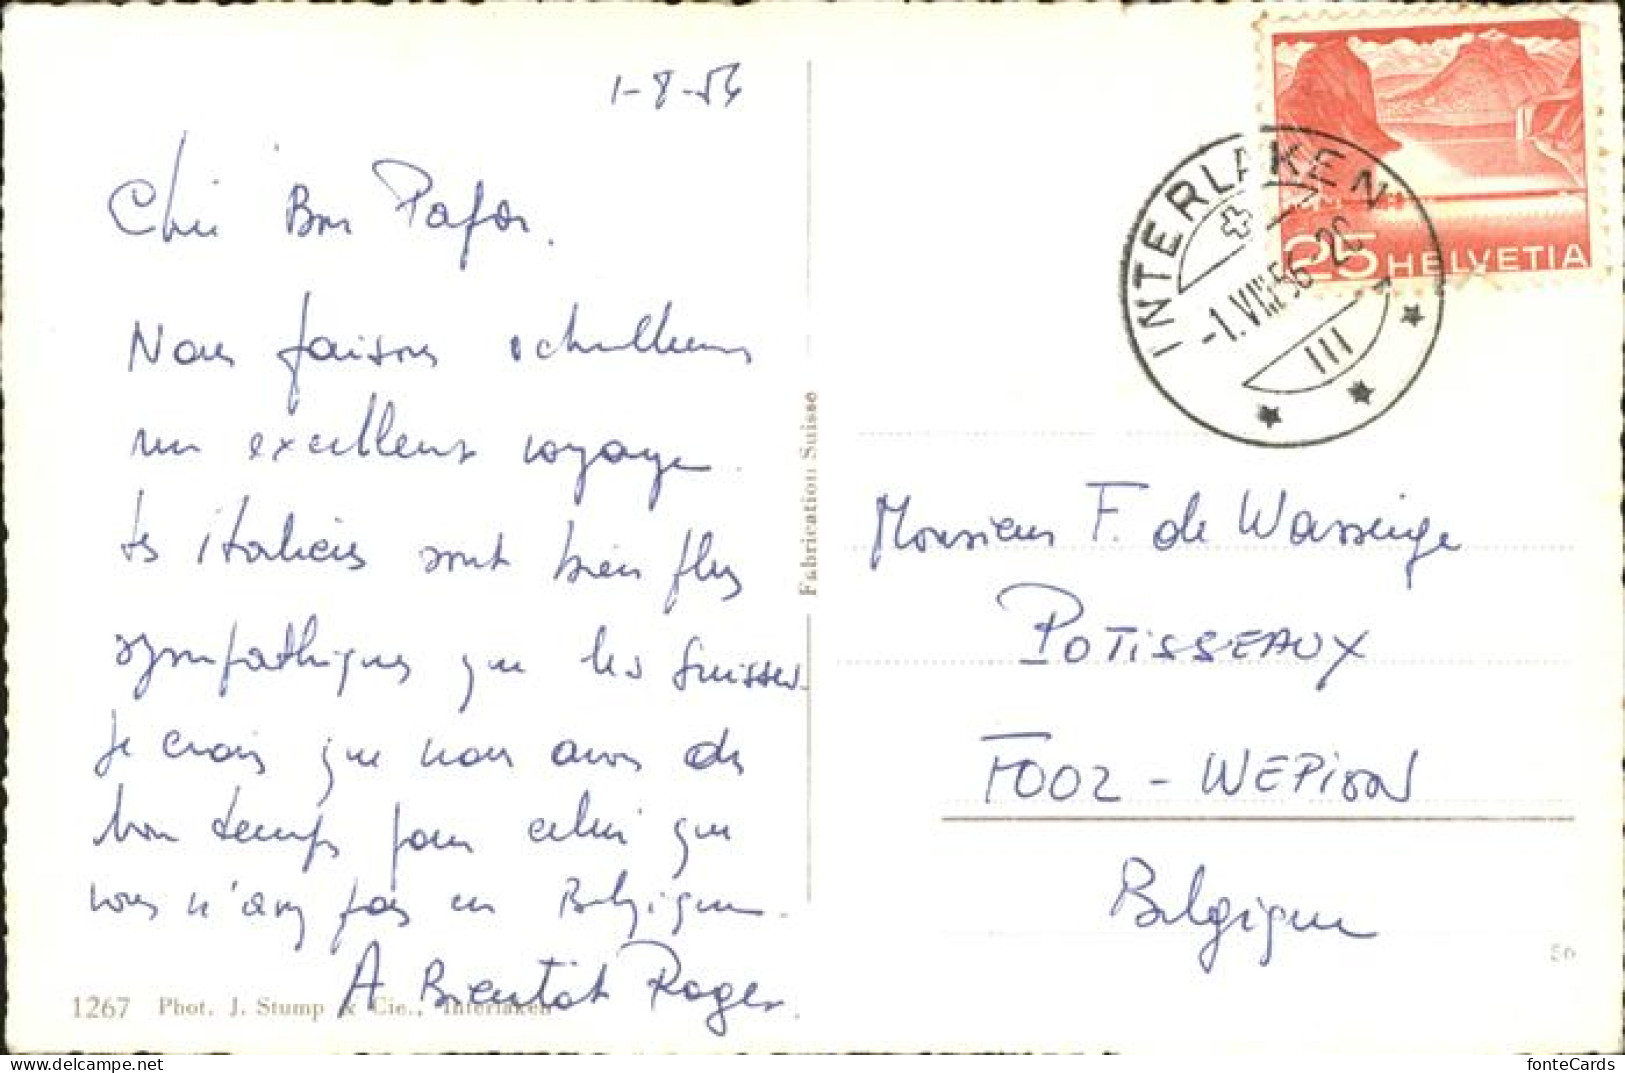 1-8-56
Cher Bon Papa.
Nous faisons actuellement
un excellent voyage.
les italiens sont bien plus
sympathiques que les Suisses.
Je crois que nous avons du
bon temps pour celui que
vous n'avez pas en Belgique.
A Bientôt Roger.
1267 Phot. J. Stump & Cie., Interlaken
Fabrication Suisse
INTERLAKEN
-1.VIII.56-20
III
25 HELVETIA
Monsieur F. de Wasseige
POTISSEAUX
FOOZ - WEPION
Belgique
50
fonteCards